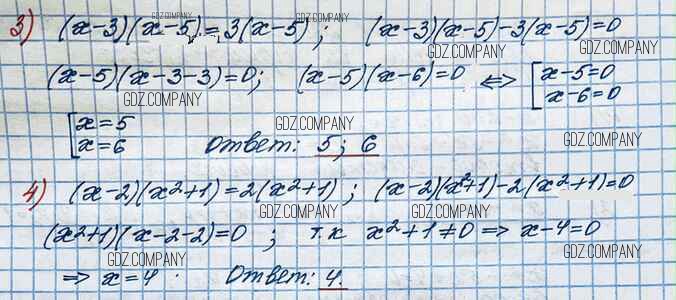 3) (x-3)(x-5)=3(x-5); (x-3)(x-5)-3(x-5)=0
(x-5)(x-3-3)=0; (x-5)(x-6)=0 ⟺ [x-5=0
x-6=0
[x=5
x=6 Ответ: 5; 6
4) (x-2)(x²+1)=2(x²+1); (x-2)(x²+1)-2(x²+1)=0
(x²+1)(x-2-2)=0; т.к x²+1≠0 ⟹ x-4=0
⟹ x=4. Ответ: 4.
GDZ.COMPANY
GDZ.COMPANY
GDZ.COMPANY
GDZ.COMPANY
GDZ.COMPANY
GDZ.COMPANY
GDZ.COMPANY
GDZ.COMPANY
GDZ.COMPANY
GDZ.COMPANY
GDZ.COMPANY
GDZ.COMPANY
GDZ.COMPANY
GDZ.COMPANY